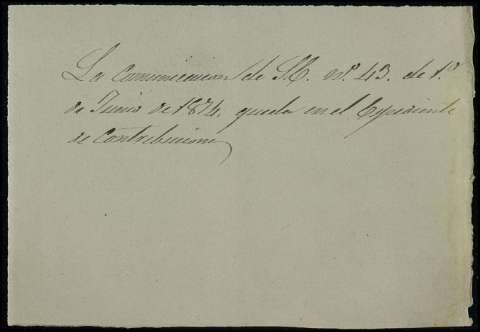 La Comunicacion de S.E. nº 43. de 1.º
de Junio de 1874. queda en el Espediente
de Contribucion